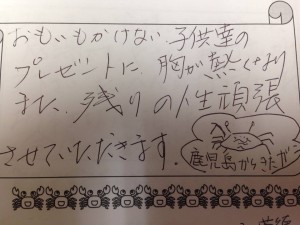 おもいもかけない子供達の
プレゼントに、胸が熱くなり
また、残りの人生頑張
させていただきます。
鹿児島からきたガニ